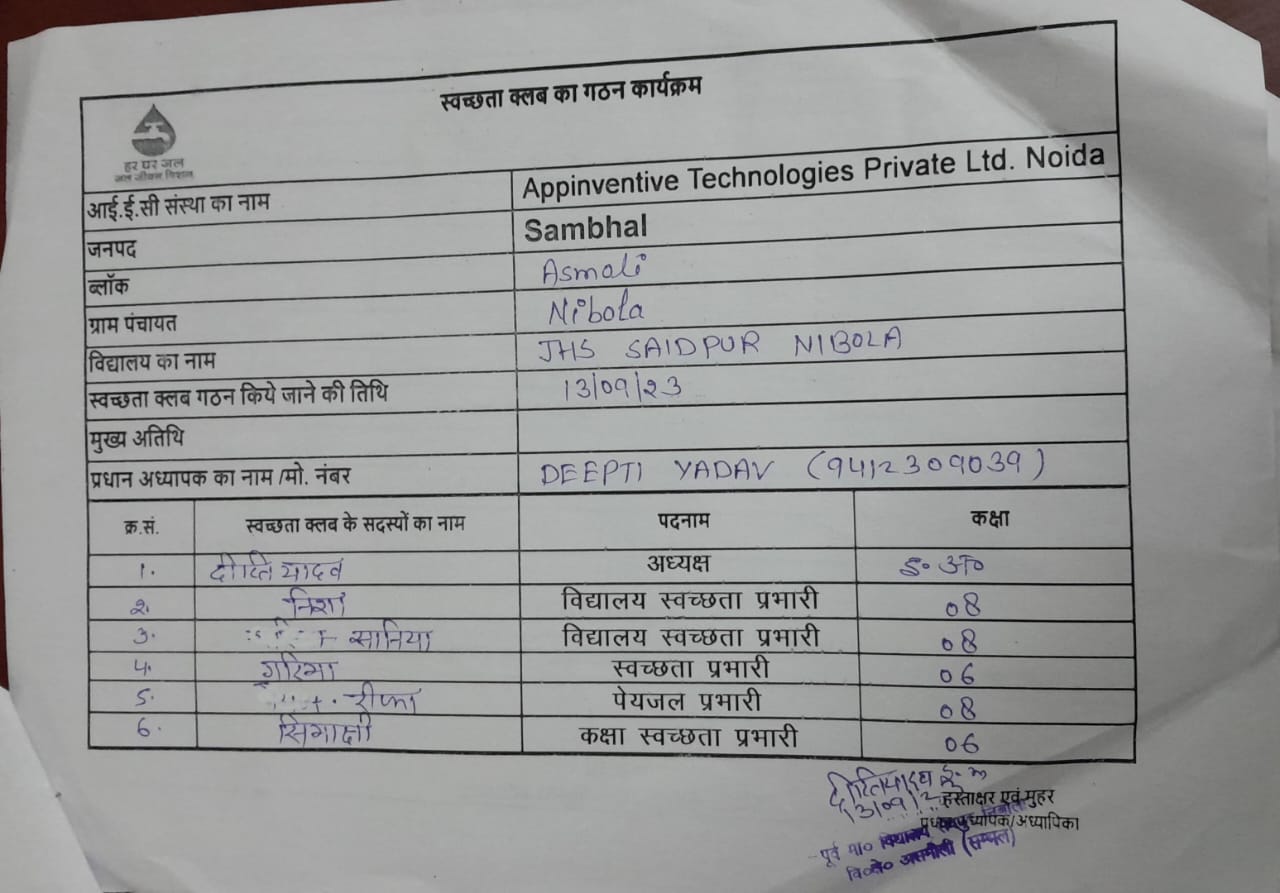 स्वच्छता क्लब का गठन कार्यक्रम
हर घर जल
जल जीवन मिशन
आई.ई.सी संस्था का नाम Appinventive Technologies Private Ltd. Noida
जनपद Sambhal
ब्लॉक Asmoli
ग्राम पंचायत Nibola
विद्यालय का नाम JHS SAIDPUR NIBOLA
स्वच्छता क्लब गठन किये जाने की तिथि 13/09/23
मुख्य अतिथि
प्रधान अध्यापक का नाम /मो. नंबर DEEPTI YADAV (9412309039)
क्र.सं. स्वच्छता क्लब के सदस्यों का नाम पदनाम कक्षा
1. दीप्ति यादव अध्यक्ष इ० अ०
2. निशा विद्यालय स्वच्छता प्रभारी 08
3. सानिया विद्यालय स्वच्छता प्रभारी 08
4. गरिमा स्वच्छता प्रभारी 06
5. पेयजल प्रभारी 08
6. कक्षा स्वच्छता प्रभारी 06
दीप्ति यादव
13/09/2
हस्ताक्षर एवं मुहर
प्रधानाध्यापक/अध्यापिका
पूर्व मा० विद्यालय
वि०क्षे० असमौली (सम्भल)